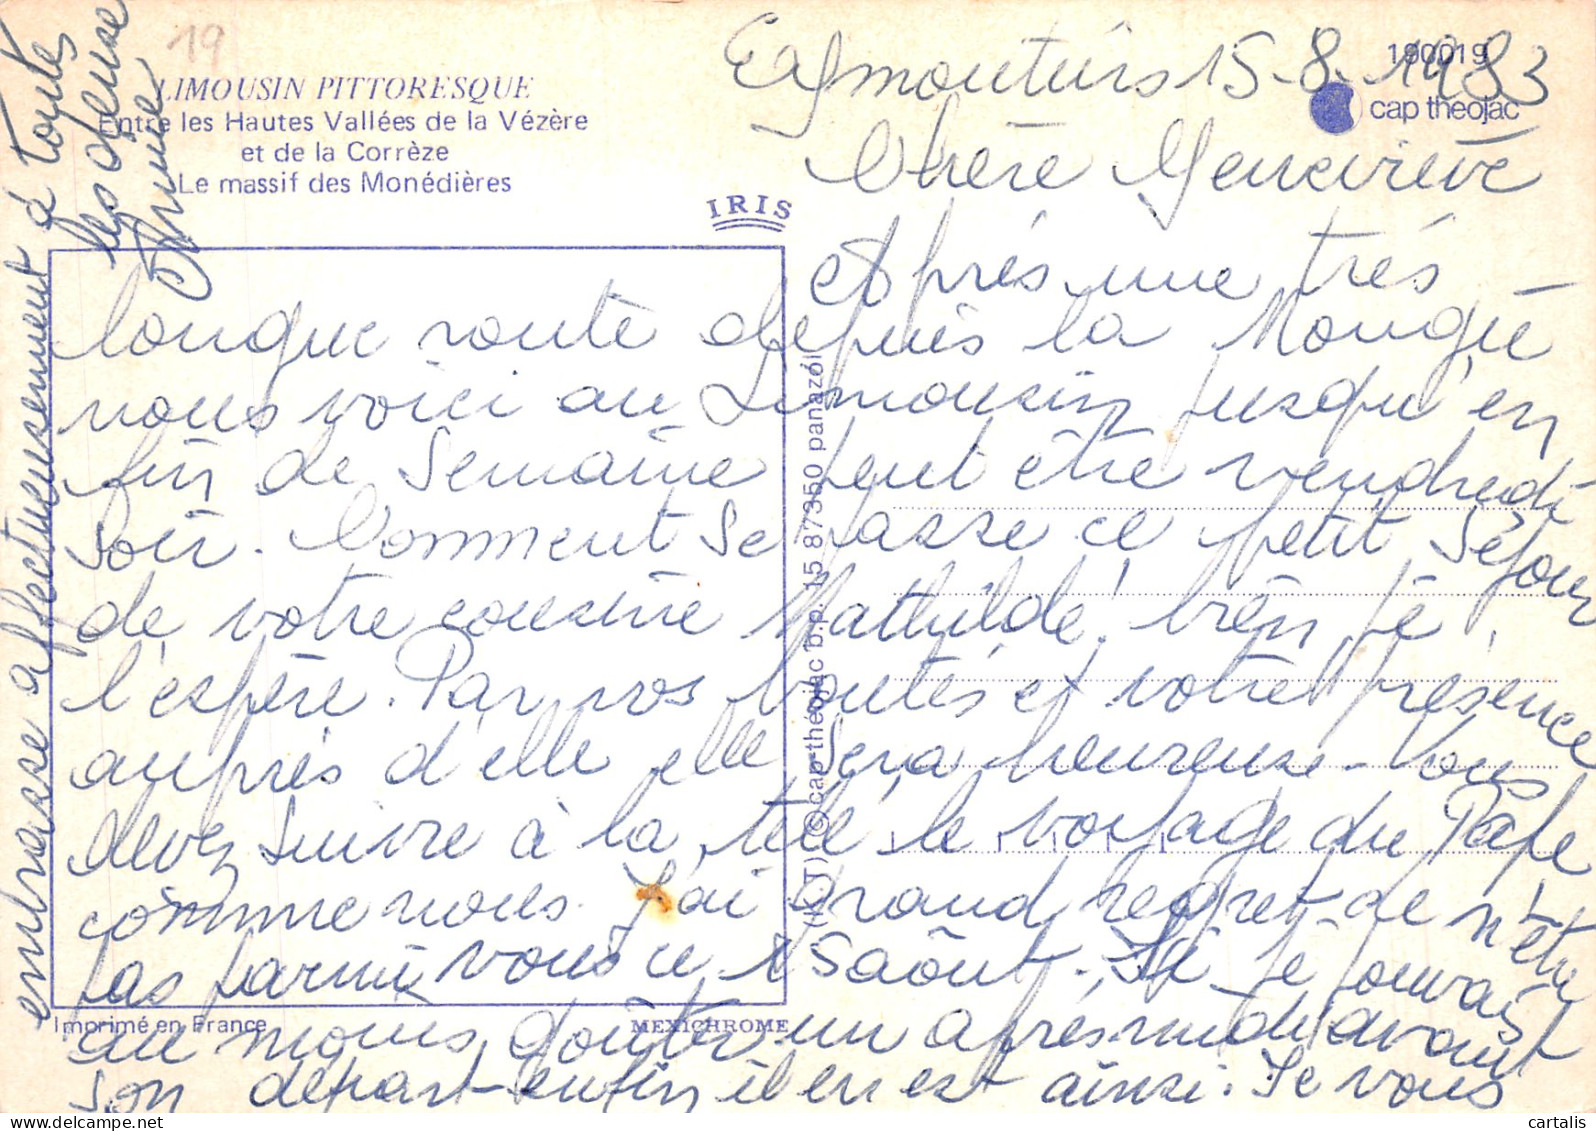 19
LIMOUSIN PITTORESQUE
Entre les Hautes Vallées de la Vézère
et de la Corrèze
Le massif des Monédières
IRIS
190019
cap théojac
Eymoutiers 15-8-1983
Chère Geneviève
Après une très
longue route depuis la Mongie
nous voici au Limousin jusqu'en
fin de semaine peut être vendredi
soir. Comment se passe ce petit séjour
de votre cousine Mathilde! bien je
l'espère. Par vos bontés et votre présence
auprès d'elle elle sera heureuse - Vous
devez suivre à la télé le voyage du Pape
comme nous. J'ai grand regret de n'être
pas parmi vous ce 15 août. Si je pouvais
au moins goûter un après midi avant
son départ - enfin il en est ainsi. Je vous
embrasse affectueusement à toutes
les deux
(K.J) © cap-théojac b.p. 15 87350 panazol
Imprimé en France
MEXICHROME
cartalis / www.delcampe.net